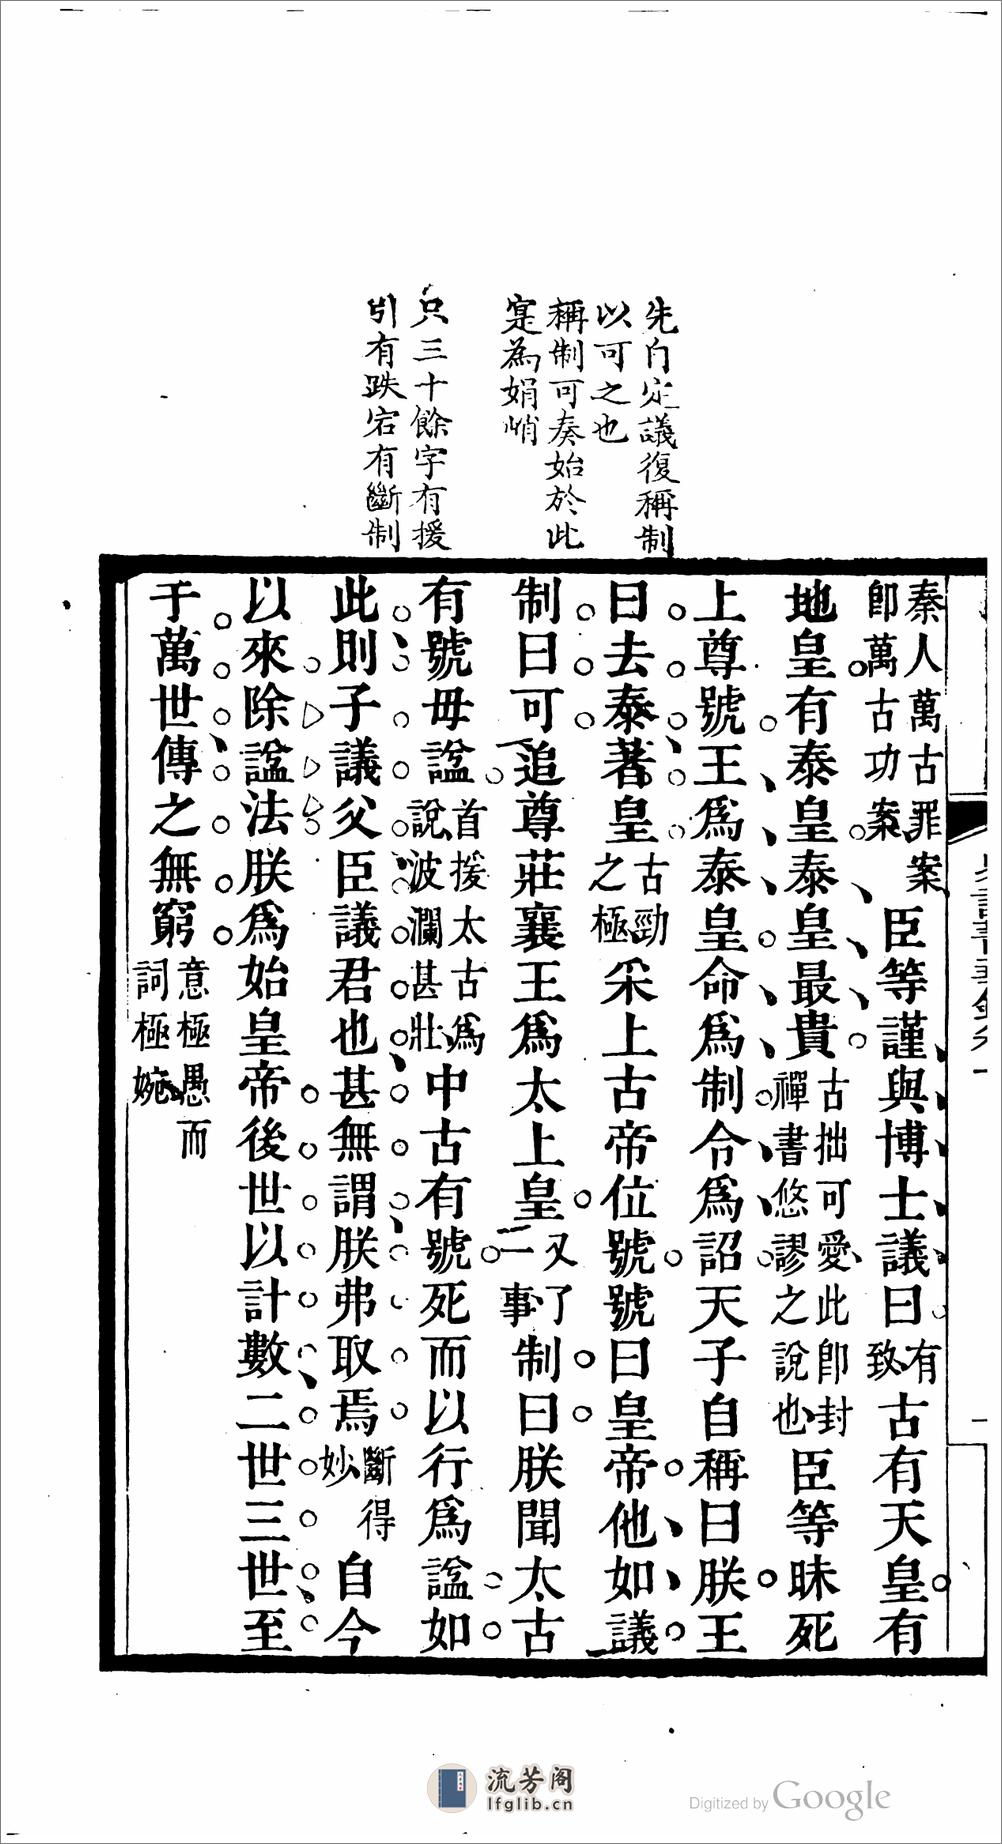 先自定議復稱制
以可之也
稱制可奏始於此
寔為娟峭
只三十餘字有援
引有跌宕有斷制
秦人萬古罪案
卽萬古功案
臣等謹與博士議曰
有
致
古有天皇有
地皇有泰皇泰皇最貴
古拙可愛此卽封
禪書悠謬之說也
臣等昧死
上尊號王爲泰皇命爲制令爲詔天子自稱曰朕王
曰去泰著皇
古勁
之極
采上古帝位號號曰皇帝他如議
制曰可追尊莊襄王爲太上皇
又了
一事
制曰朕聞太古
有號毋諡
首援太古爲
說波瀾甚壯
中古有號死而以行爲諡如
此則子議父臣議君也甚無謂朕弗取焉
斷得
妙
自今
以來除諡法朕爲始皇帝後世以計數二世三世至
于萬世傳之無窮
意極愚而
詞極婉
流芳阁
lfglib.cn
Digitized by Google